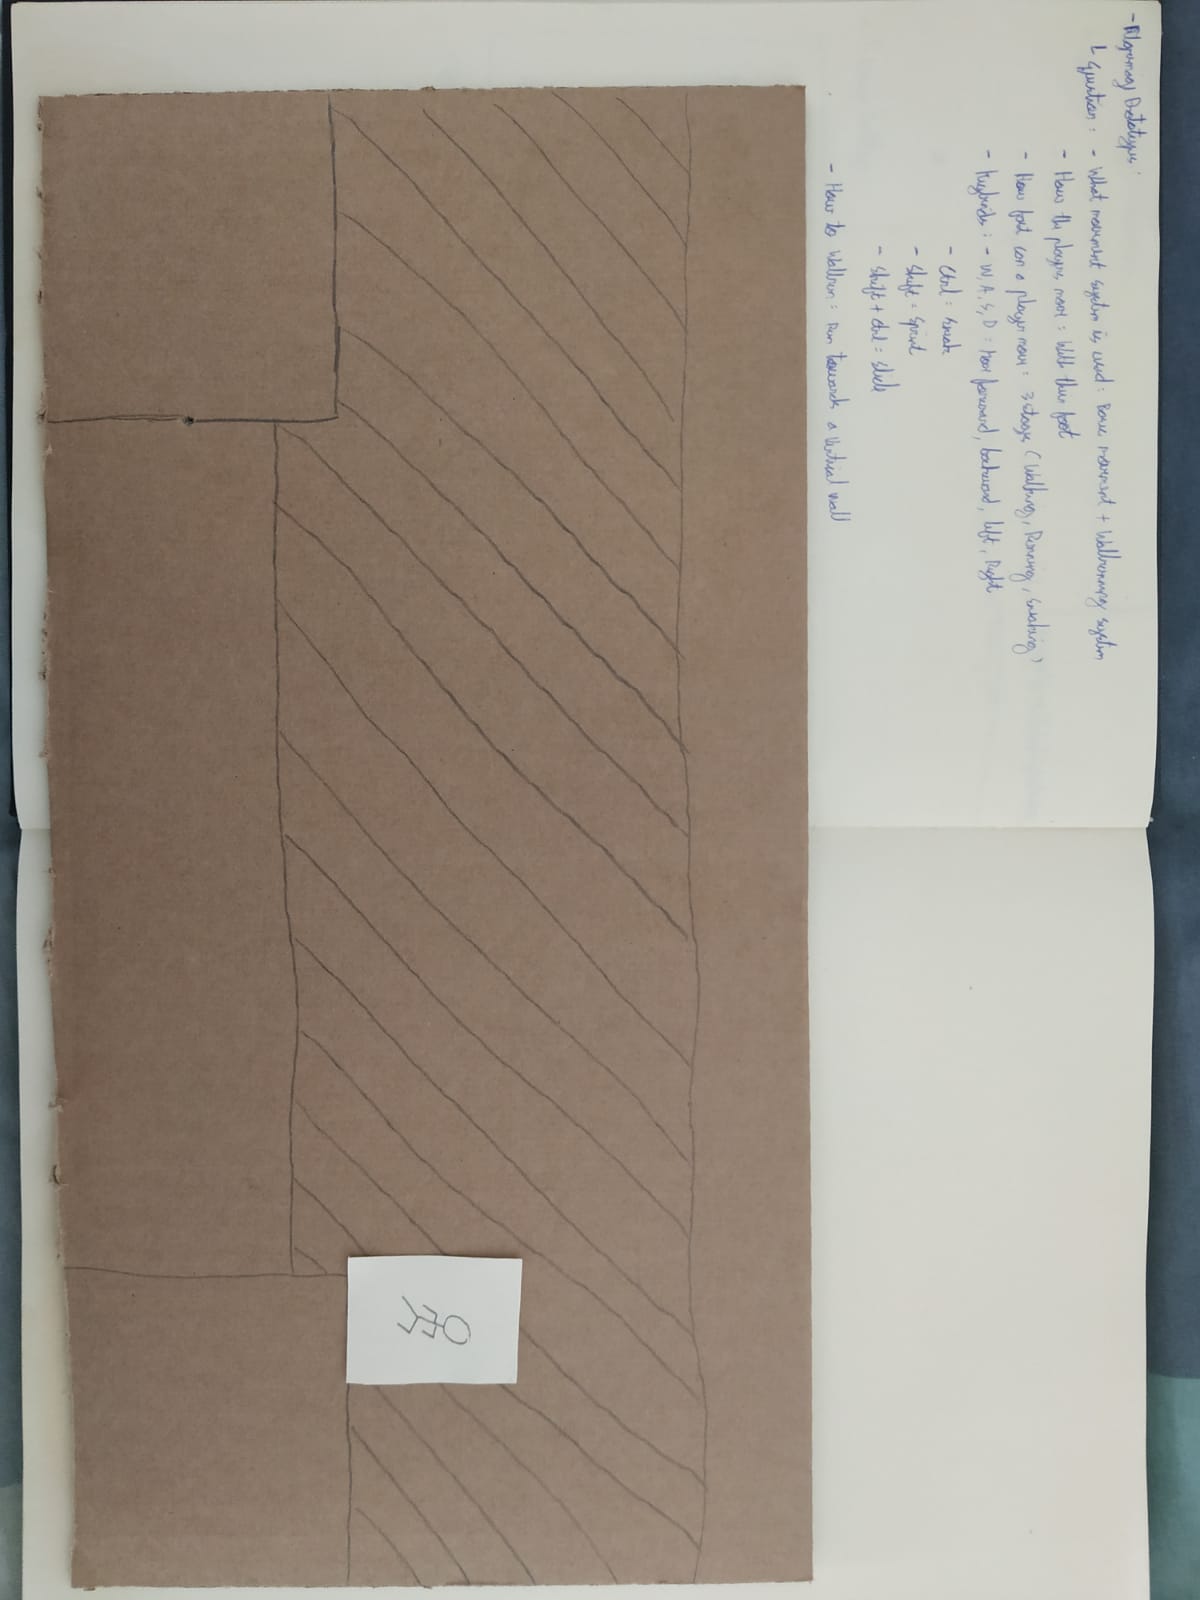 - Prototypes
↳ Question: - What movement system is used: Basic movement + Wallrunning system
- How the players move: With their foot
- How fast can a player move: 3 stages (Walking, Running, Sneaking)
- Keybinds: - W, A, S, D: Move forward, backward, left, Right
- Ctrl: Sneak
- Shift: Sprint
- Shift + Ctrl: Slide
- How to Wallrun: Run towards a Vertical wall